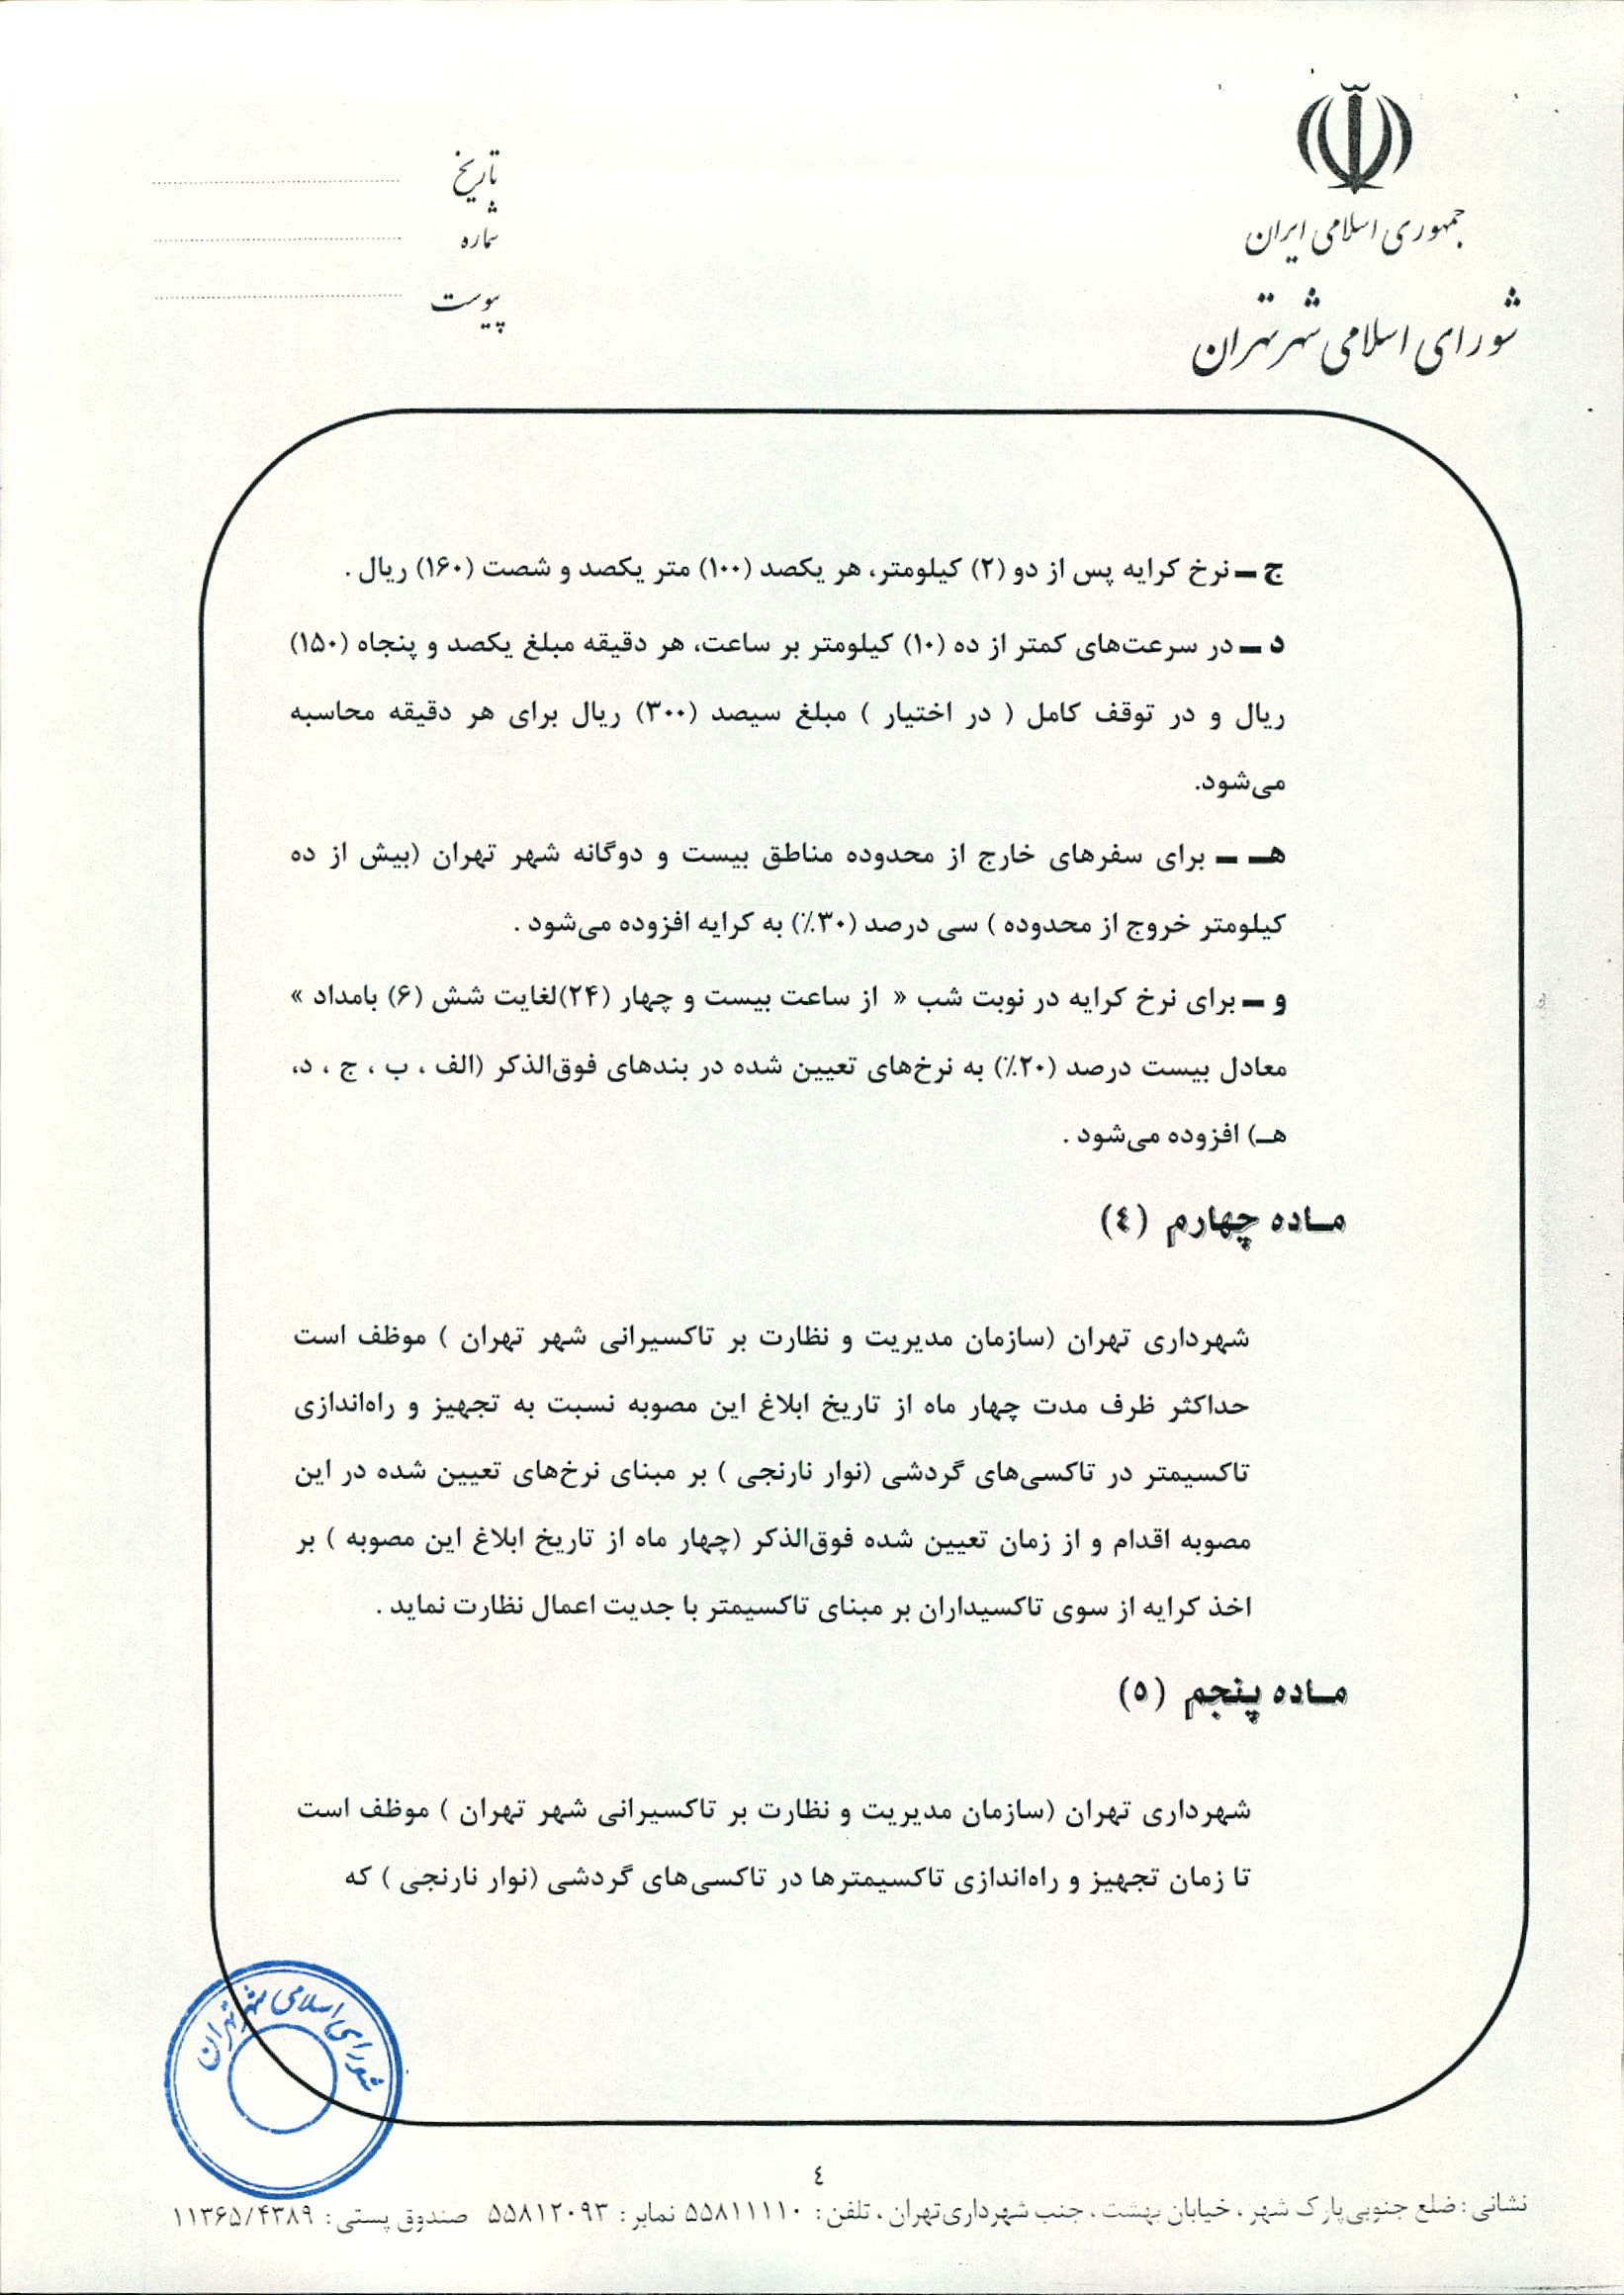 جمهوری اسلامی ایران
شورای اسلامی شهر تهران
تاریخ
شماره
پیوست
ج – نرخ کرایه پس از دو (۲) کیلومتر، هر یکصد (۱۰۰) متر یکصد و شصت (۱۶۰) ریال .
د – در سرعت‌های کمتر از ده (۱۰) کیلومتر بر ساعت، هر دقیقه مبلغ یکصد و پنجاه (۱۵۰)
ریال و در توقف کامل ( در اختیار ) مبلغ سیصد (۳۰۰) ریال برای هر دقیقه محاسبه
می‌شود.
هـ – برای سفرهای خارج از محدوده مناطق بیست و دوگانه شهر تهران (بیش از ده
کیلومتر خروج از محدوده ) سی درصد (۳۰٪) به کرایه افزوده می‌شود .
و – برای نرخ کرایه در نوبت شب « از ساعت بیست و چهار (۲۴)لغایت شش (۶) بامداد »
معادل بیست درصد (۲۰٪) به نرخ‌های تعیین شده در بندهای فوق‌الذکر (الف ، ب ، ج ، د،
هـ) افزوده می‌شود .
مـاده چهارم (٤)
شهرداری تهران (سازمان مدیریت و نظارت بر تاکسیرانی شهر تهران ) موظف است
حداکثر ظرف مدت چهار ماه از تاریخ ابلاغ این مصوبه نسبت به تجهیز و راه‌اندازی
تاکسیمتر در تاکسی‌های گردشی (نوار نارنجی ) بر مبنای نرخ‌های تعیین شده در این
مصوبه اقدام و از زمان تعیین شده فوق‌الذکر (چهار ماه از تاریخ ابلاغ این مصوبه ) بر
اخذ کرایه از سوی تاکسیداران بر مبنای تاکسیمتر با جدیت اعمال نظارت نماید .
مـاده پنجم (٥)
شهرداری تهران (سازمان مدیریت و نظارت بر تاکسیرانی شهر تهران ) موظف است
تا زمان تجهیز و راه‌اندازی تاکسیمترها در تاکسی‌های گردشی (نوار نارنجی ) که
شورای اسلامی شهر تهران
٤
نشانی : ضلع جنوبی پارک شهر ، خیابان بهشت ، جنب شهرداری تهران ، تلفن : ۵۵۸۱۱۱۱۰ نمابر : ۵۵۸۱۲۰۹۳ صندوق پستی : ۱۱۳۶۵/۴۳۸۹